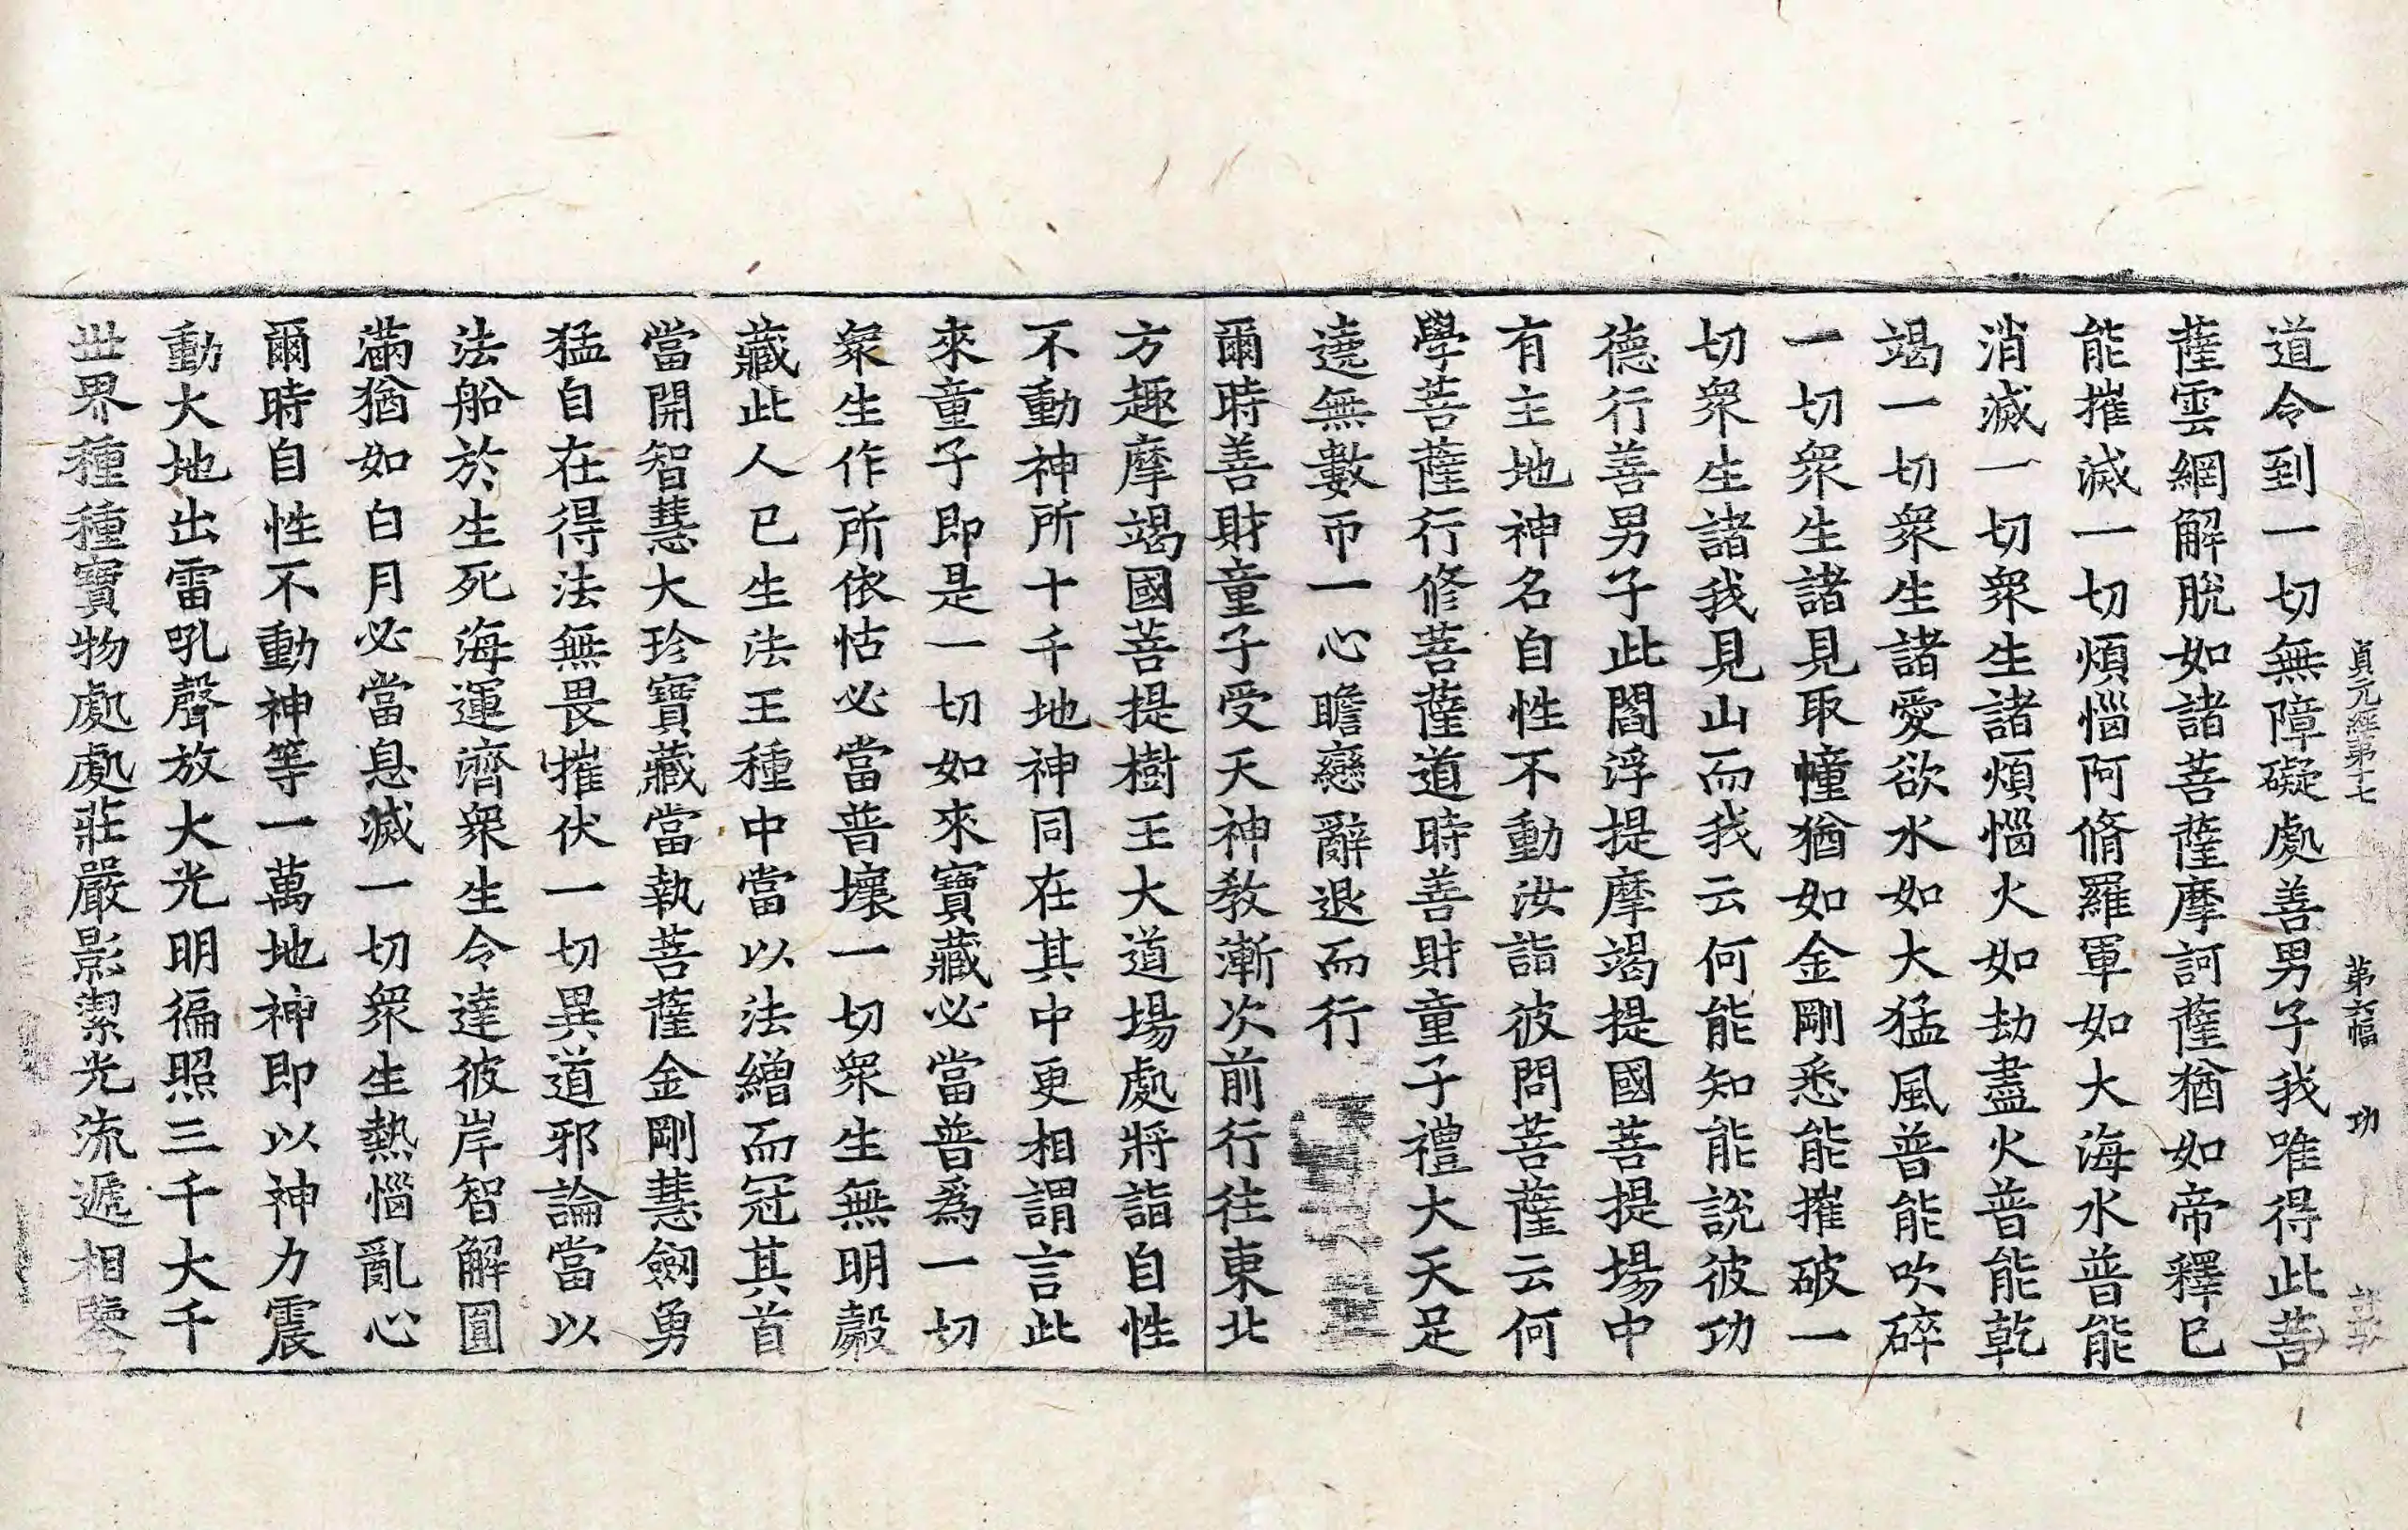 貞元經第十七 第六幅 功
道令到一切無障礙處善男子我唯得此菩
薩雲網解脫如諸菩薩摩訶薩猶如帝釋已
能摧滅一切煩惱阿脩羅軍如大海水普能
消滅一切衆生諸煩惱火如劫盡火普能乾
竭一切衆生諸愛欲水如大猛風普能吹碎
一切衆生諸見取幢猶如金剛悉能摧破一
切衆生諸我見山而我云何能知能說彼功
德行善男子此閻浮提摩竭提國菩提場中
有主地神名自性不動汝詣彼問菩薩云何
學菩薩行修菩薩道時善財童子禮大天足
遶無數帀一心瞻戀辭退而行
爾時善財童子受天神教漸次前行往東北
方趣摩竭國菩提樹王大道場處將詣自性
不動神所十千地神同在其中更相謂言此
來童子即是一切如來寶藏必當普爲一切
衆生作所依怙必當普壞一切衆生無明㲉
藏此人已生法王種中當以法繒而冠其首
當開智慧大珍寶藏當執菩薩金剛慧劒勇
猛自在得法無畏摧伏一切異道邪論當以
法船於生死海運濟衆生令達彼岸智解圓
滿猶如白月必當息滅一切衆生熱惱亂心
爾時自性不動神等一萬地神即以神力震
動大地出雷吼聲放大光明徧照三千大千
世界種種寶物處處莊嚴影潔光流遞相鑒